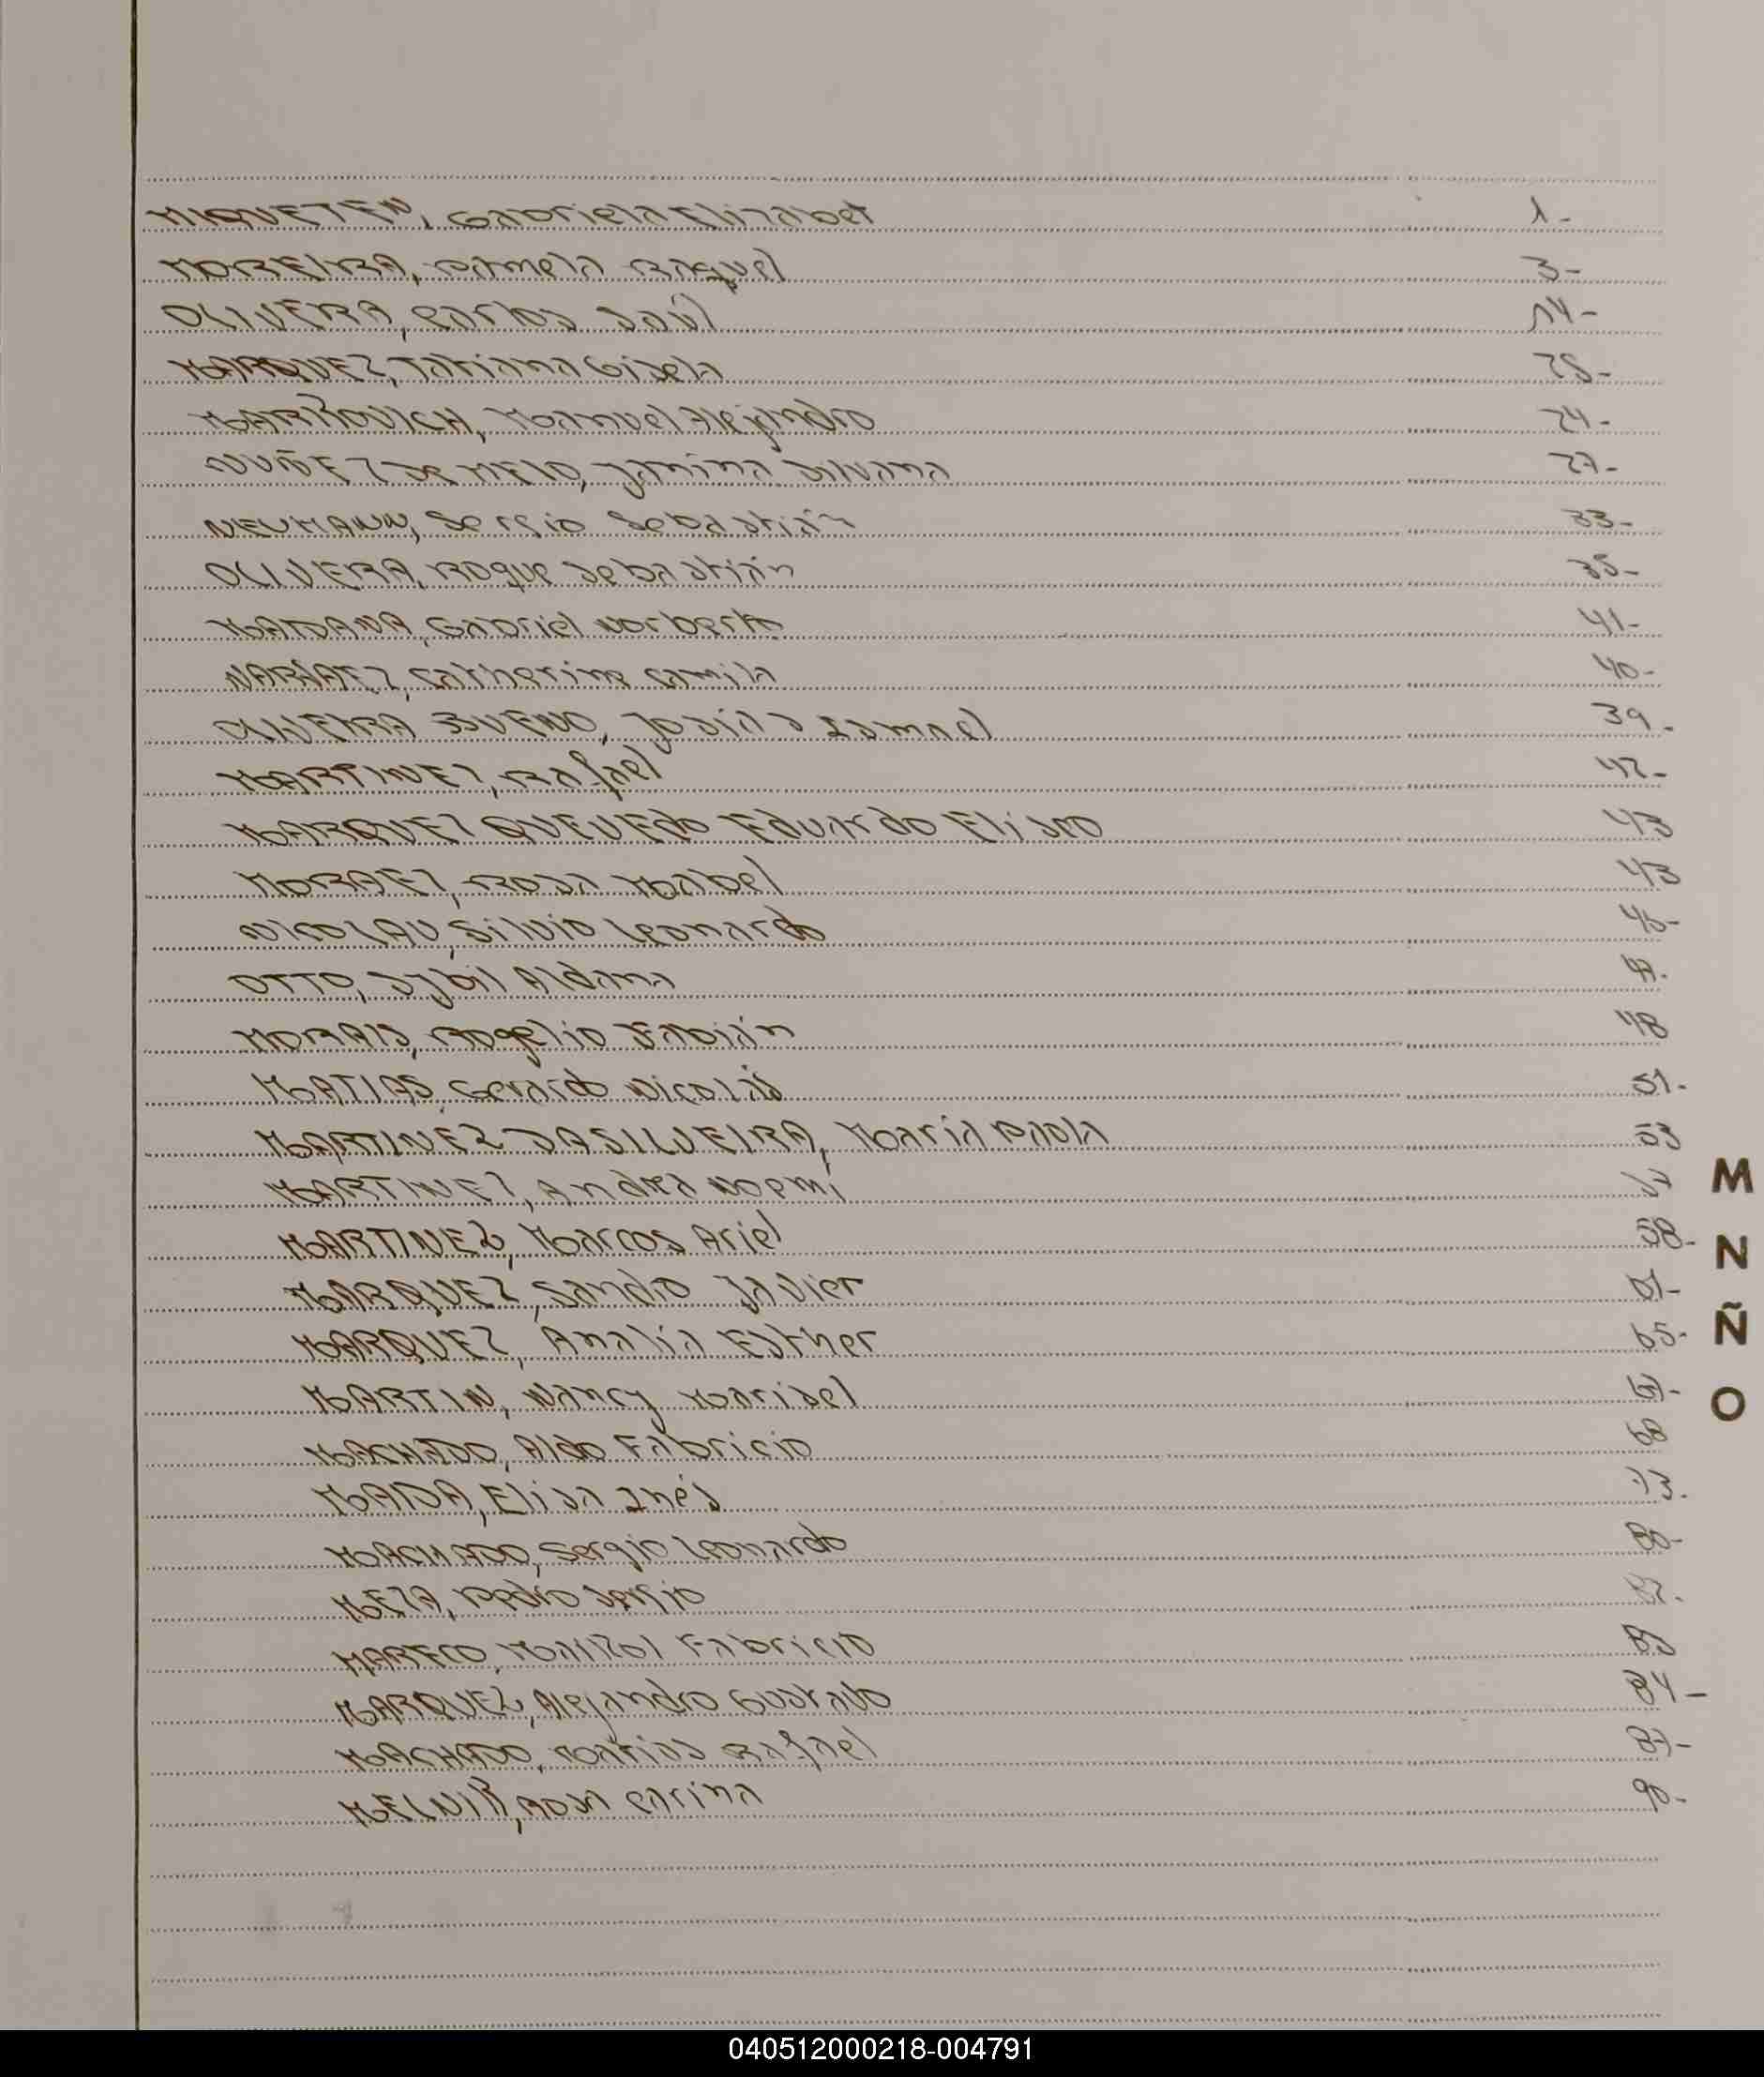 MIQUETEN, Gabriela Elizabet 1-
MOREIRA, Pamela Raquel 3-
OLIVERA, Carlos Saúl 14-
MARQUEZ, Tatiana Gisela 28-
MARKOVICH, Manuel Alejandro 24-
NUÑEZ DE MELO, Jamina Silvana 27-
NEUMANN, Sergio Sebastián 33-
OLIVEIRA, Roque Sebastián 35-
MAIDANA, Gabriel Norberto 41-
NARVAEZ, Catherine Camila 40-
OLIVEIRA BUENO, Josías Esmael 39-
MARTINEZ, Rafael 42-
MARQUEZ QUEVEDO Eduardo Eliseo 43
MORAEZ, Rosa Mabel 43
NICOLAU, Silvio Leonardo 45-
OTTO, Sybil Aldana 47-
MORAIS, Rogelio Fabián 48
MATIAS, Gerardo Nicolás 51-
MARTINEZ DA SILVEIRA, María Paola 53
MARTINEZ, Andrea Noemí
MARTINEZ, Marcos Ariel 58-
MARQUEZ, Sandro Javier 61-
MARQUEZ, Analía Esther 65-
MARTIN, Nancy Marisel
MACHADO, Aldo Fabricio 68
MAIDA, Elisa Inés 73-
MACHADO, Sergio Leonardo 80-
MEZA, Pedro Sergio 82-
MARECO, Fabricio 83
MARQUEZ, Alejandro Gustavo 84-
MACHADO, Matías Rafael 87-
MELNIK, Rosa Carina 90-
M
N
Ñ
O
040512000218-004791